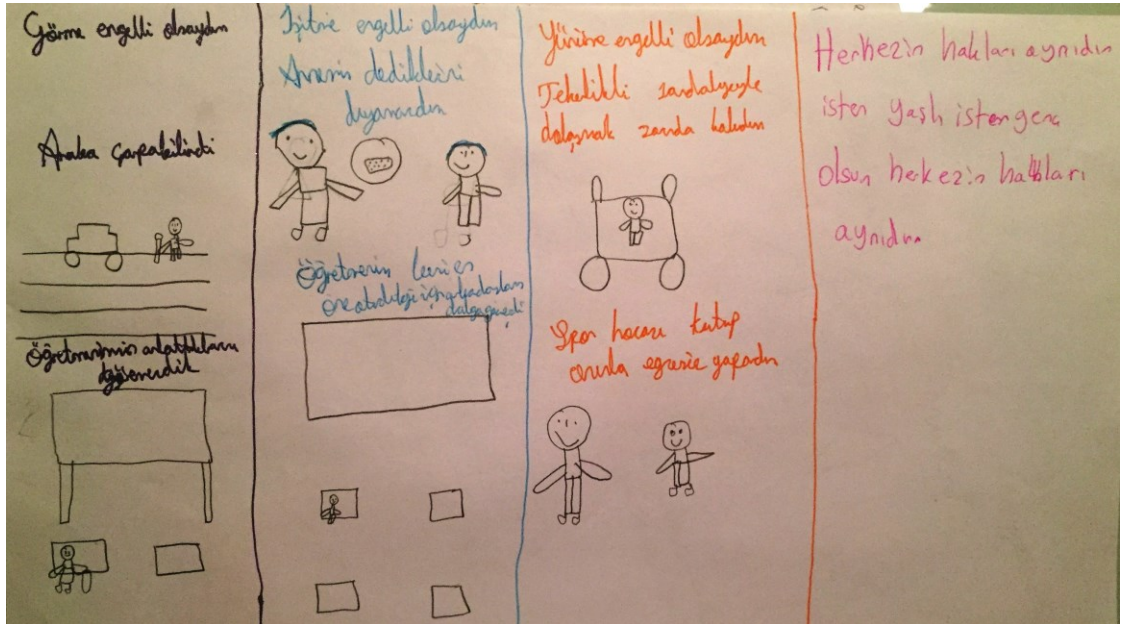 Görme engelli olsaydım
Araba çarpabilirdi
Öğretmenimin anlattıklarını
göremezdik
İşitme engelli olsaydım
Annemin dediklerini
duyamazdım
Öğretmenin
Yürüme engelli olsaydım
Tekerlikli sandalyeyle
dolaşmak zorunda kalırdım
Spor hocası tutup
onunla egzersiz yapardım
Herkezin hakları aynıdır
ister yaşlı ister genç
olsun herkezin hakları
aynıdır